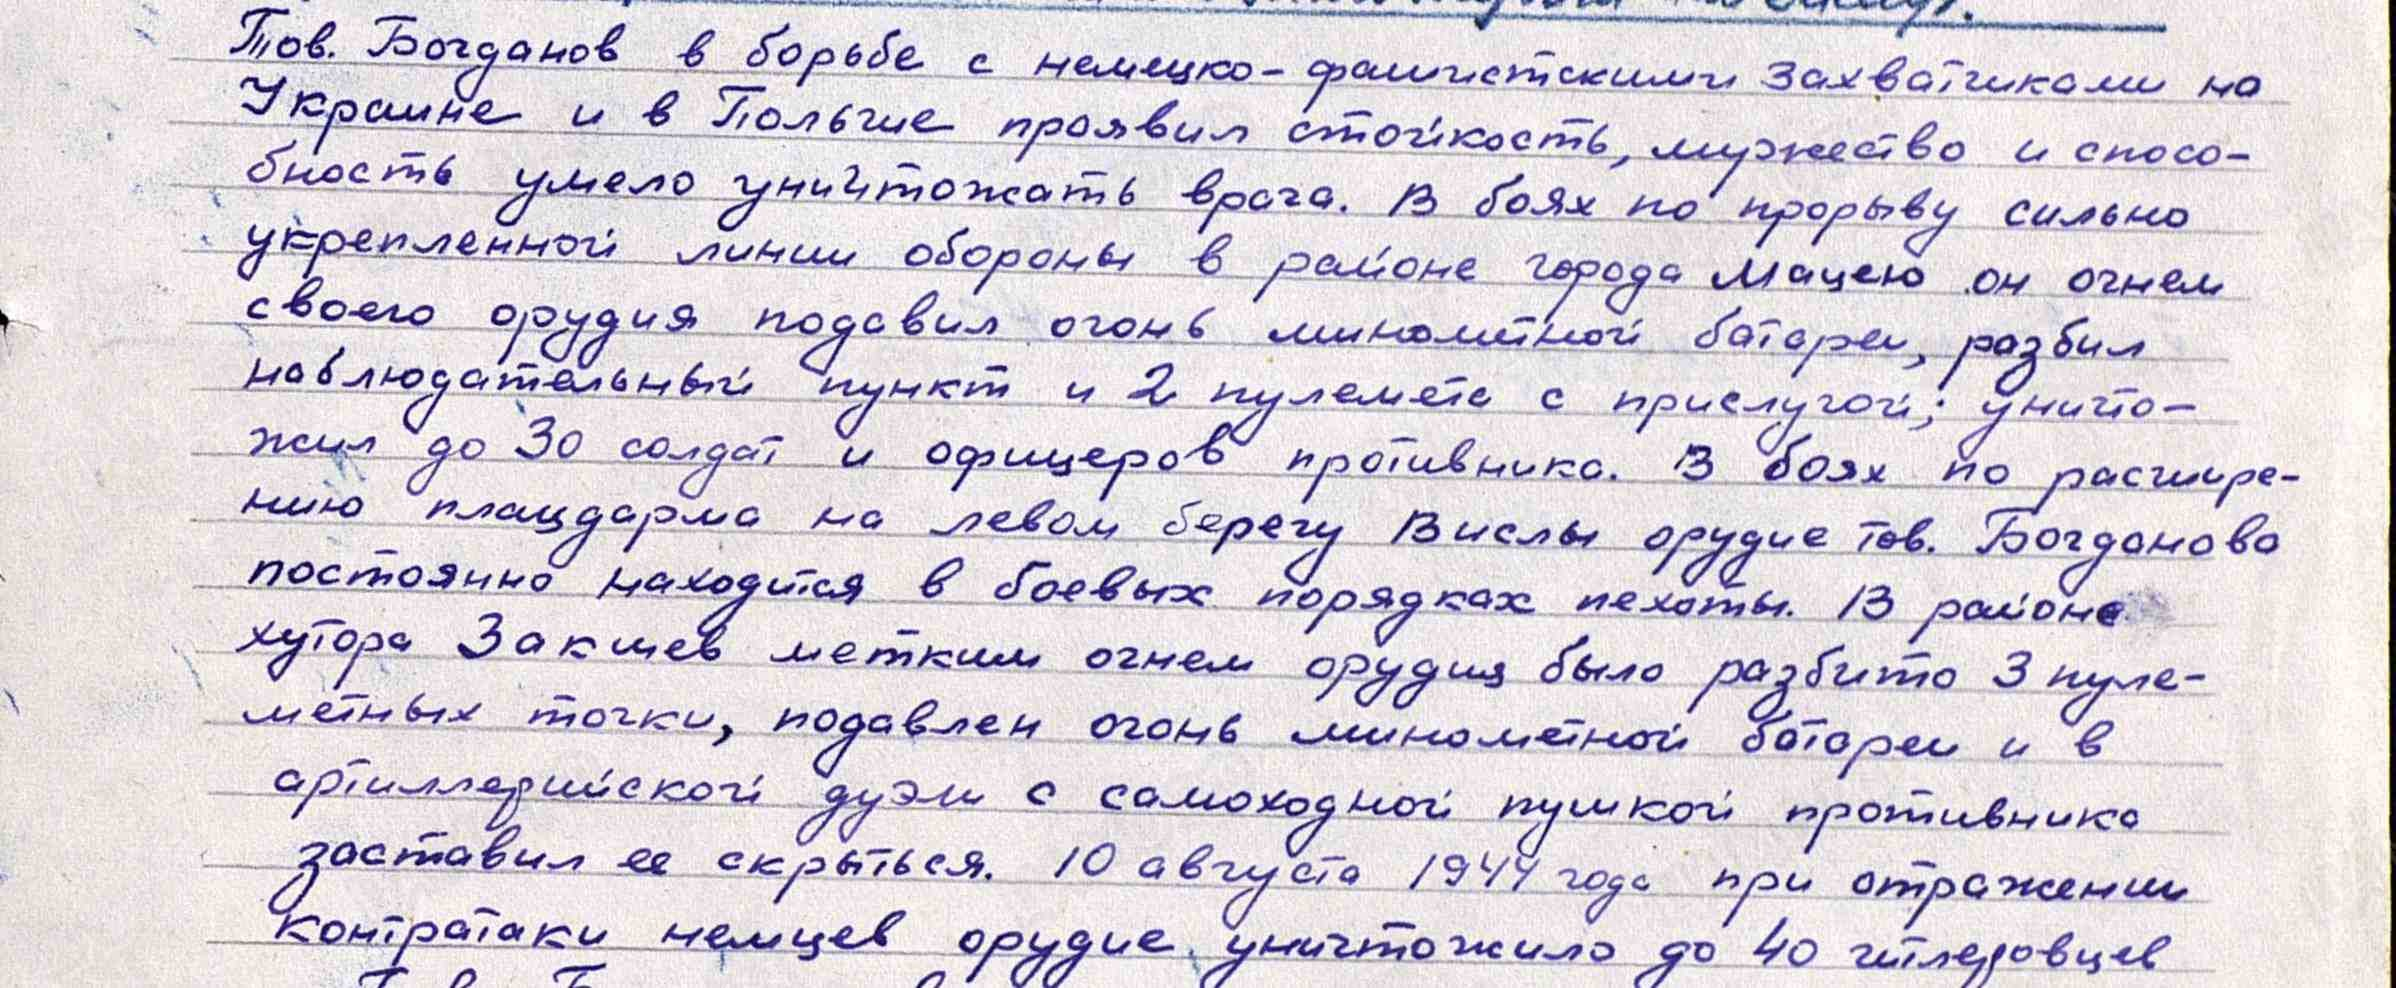 Тов. Богданов в борьбе с немецко-фашистскими захватчиками на
Украине и в Польше проявил стойкость, мужество и спосо-
бность умело уничтожать врага. В боях по прорыву сильно
укрепленной линии обороны в районе города Мацею он огнем
своего орудия подавил огонь минометной батареи, разбил
наблюдательный пункт и 2 пулемета с прислугой; уничто-
жил до 30 солдат и офицеров противника. В боях по расшире-
нию плацдарма на левом берегу Вислы орудие тов. Богданова
постоянно находится в боевых порядках пехоты. В районе
хутора Закшев метким огнем орудия было разбито 3 пуле-
метных точки, подавлен огонь минометной батареи и в
артиллерийской дуэли с самоходной пушкой противника
заставил ее скрыться. 10 августа 1944 года при отражении
контратаки немцев орудие уничтожило до 40 гитлеровцев